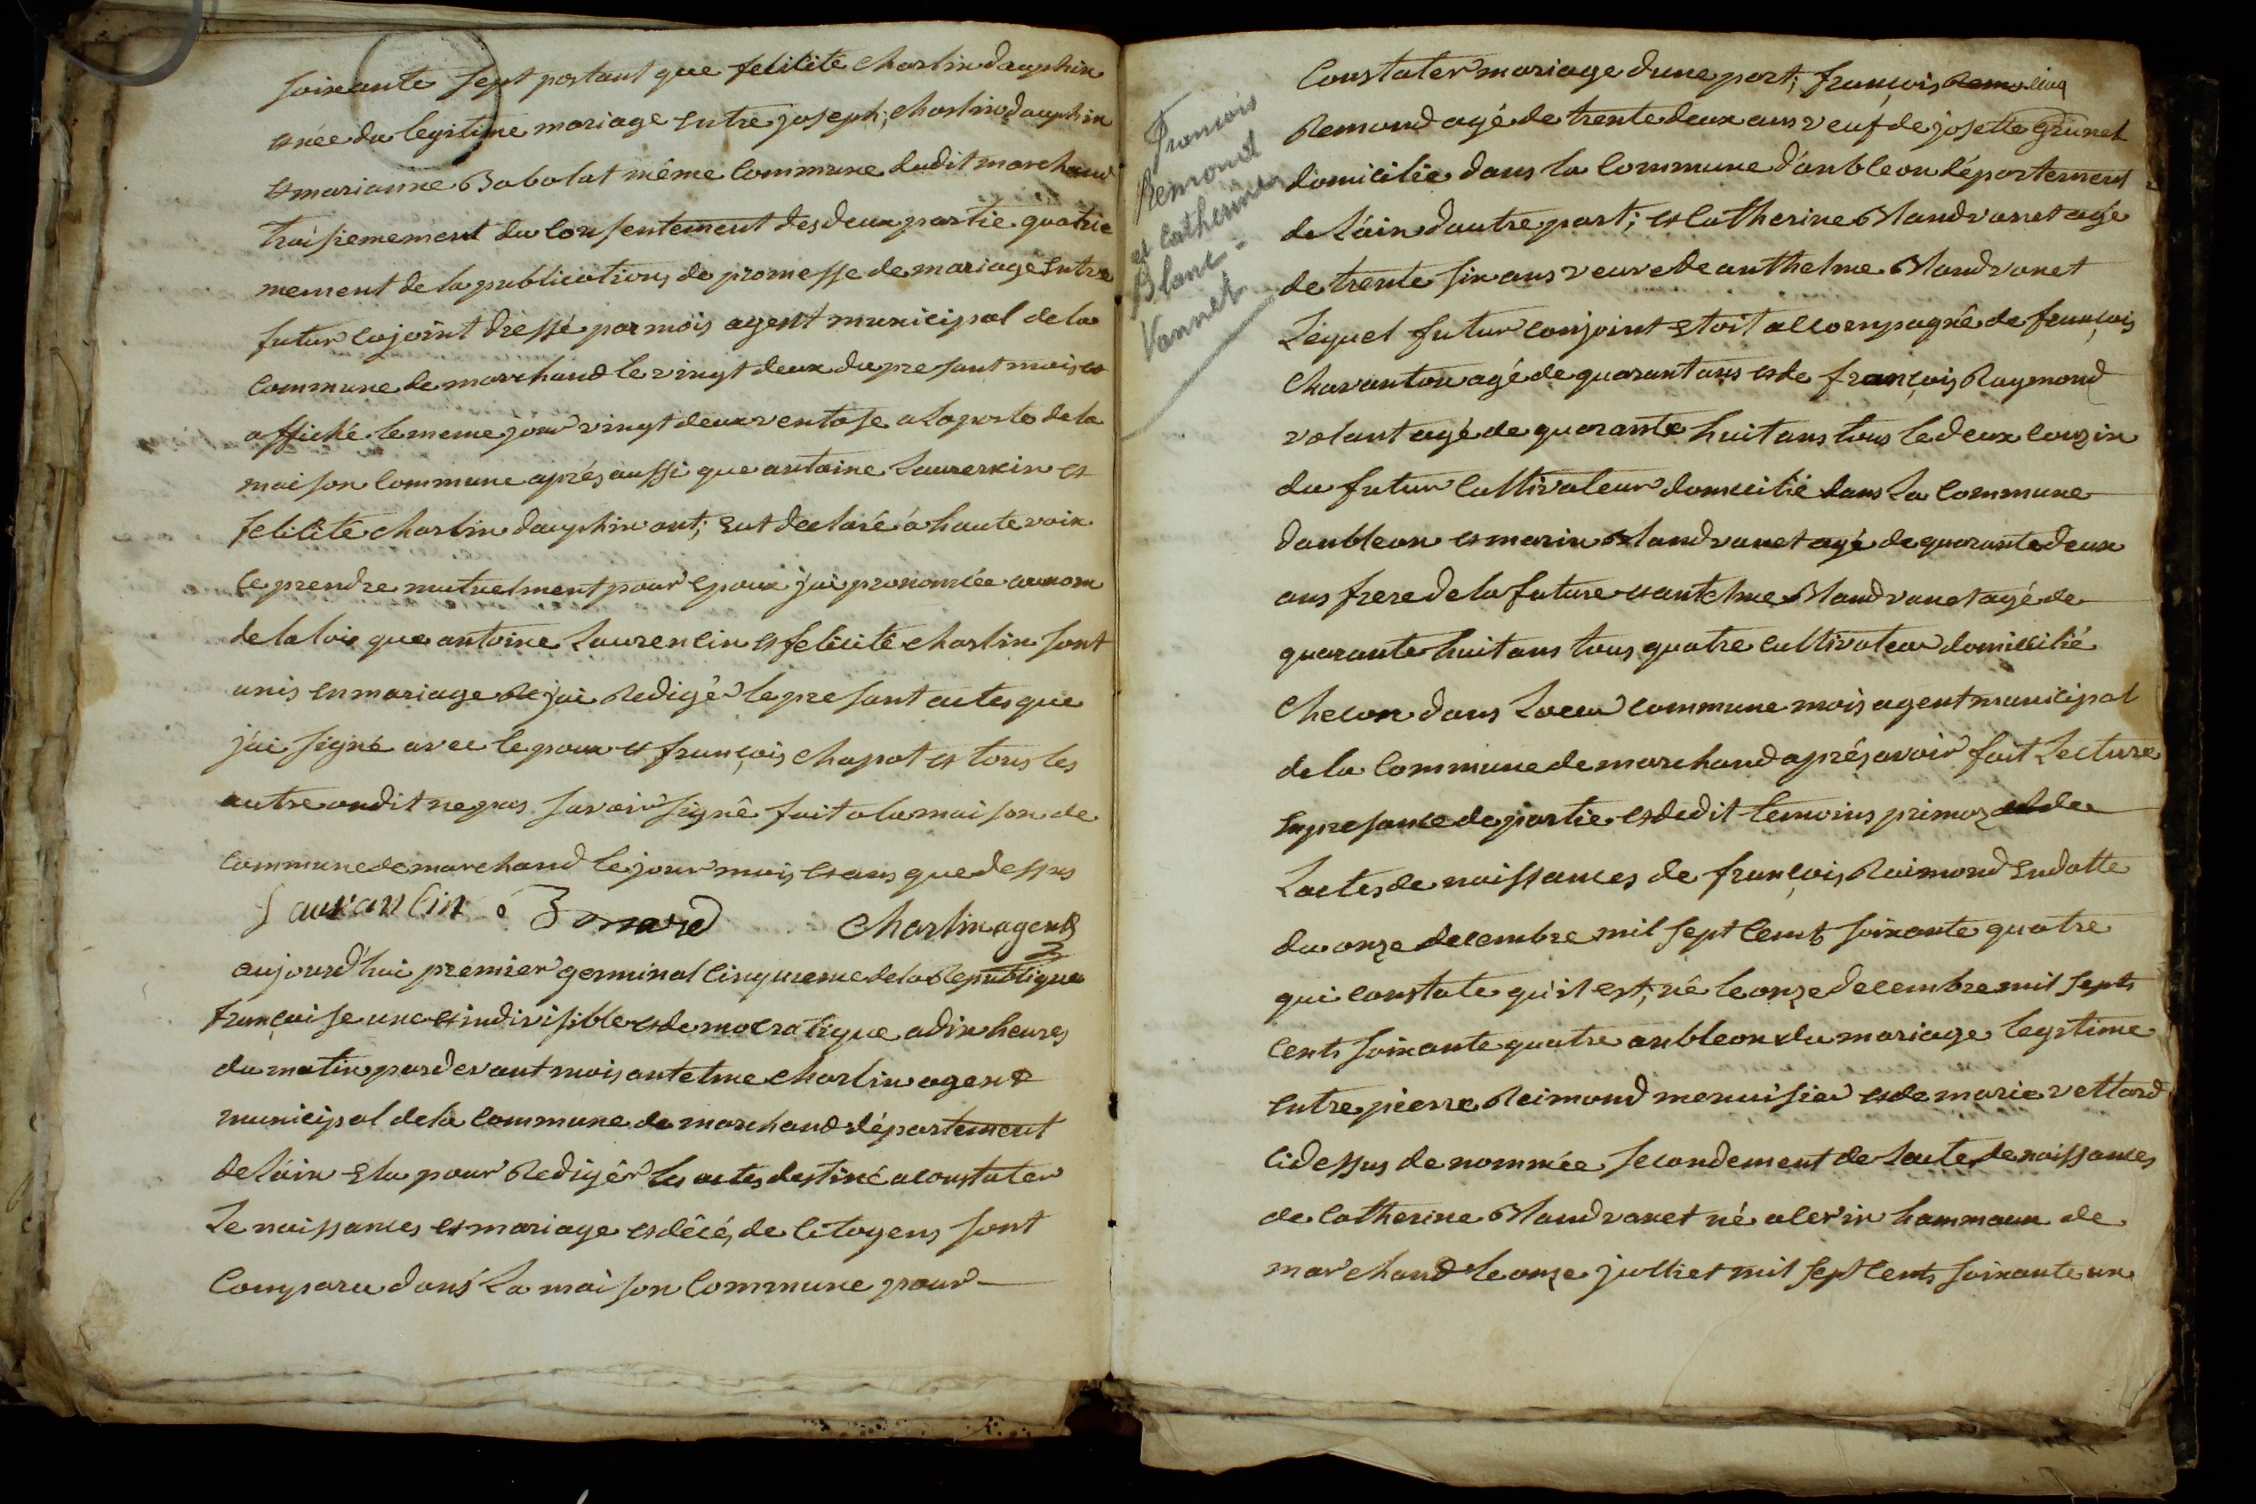 soixante sept portant que felicité charlin dauphin
est née du legitime mariage entre joseph, charlin dauphin
et marianne Babolat même commune dudit marchand
troisiemement du consentement des deux partie quatrie
mement de la publications de promesse de mariage entre
futur cojoint dressé par mois agent municipal de la
commune de marchand le vingt deux du presant mois et
affiché le meme jour vingt deux ventose a la porte de la
maison commune aprés aussi que antoine Laurencin et
felicité charlin dauphin ont; eut declaré a haute voix
ce prendre mutuelment pour epoux j'ai prononcée au nom
de la loie que antoine Laurencin et felicité charlin sont
unis en mariage jai Redigé le presant actes que
j'ai signé avec lepoux et françois chapot et tous les
autre ondit ne pas savoir signê fait a la maison de
commune de marchand le jour mois et ans que dessus
Lauranlin Bonnard charlin agent
aujourd'hui premier germinal cinquieme de la Republique
françaisse une et indivisible et democratique a dix heures
du matin pardevant mois antelme charlin agent
municipal de la commune de marchand département
de láin elu pour Redigêr les actes destiné a constater
Le naissances et mariage et décés de citoyens sont
comparu dans La maison commune pour
François
Remond
et Catherine
Blanc =
Vannet
constater mariage dune part; françois
Remond agé de trente deux ans veuf de josette grinet
domicilié dans la commune d'anbleon département
de láin dautre part; et catherine Blandvanet agé
de trente six ans veuve de anthelme Blandvanet
Lequel futur conjoint etoit accompagné de françois
Chavanton agé de quarant ans et de françois Raymond
volant agé de quarante huit ans tous le deux couzin
du futur cultivateur domicilié dans La commune
danbleon et marin Blandvanet agé de quarante deux
ans frere de la future et antelme Blandvanet agé de
quarante huit ans tous quatre cultivateur domicilié
checon dans Loeur commune mois agent municipal
de la commune de marchand aprés avoir fait Lecture
en presance de partie et dedit temoins primo de
Lactes de naissances de françois Raimond en datte
du onze decembre mil sept cents soixante quatre
qui constate qu'il est, né le onze decembre mil septs
cents soixante quatre anbleon du mariage legitime
entre pierre Reimond menuisier et de marie vettard
cidessus denommée secondement de Lacte de naissances
de catherine Blandvanet né a cerin hammaux de
marchand le onze julliet mil sept cents soixante un